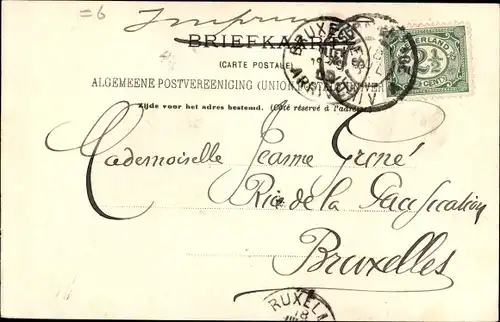 =6
Imprimé
BRIEFKAART
(CARTE POSTALE)
ALGEMEENE POSTVEREENIGING (UNION POSTALE UNIVER
Zijde voor het adres bestemd. (Côté réservé à l'adresse)
BRUXEL
NEDERLAND
2½
CENT
Mademoiselle Jeanne
Rue de la Pacification
Bruxelles
RUXEL
18